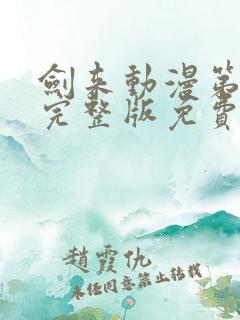 劍来動漫第
完整版免費
趙霞仇
未经同意禁止转载